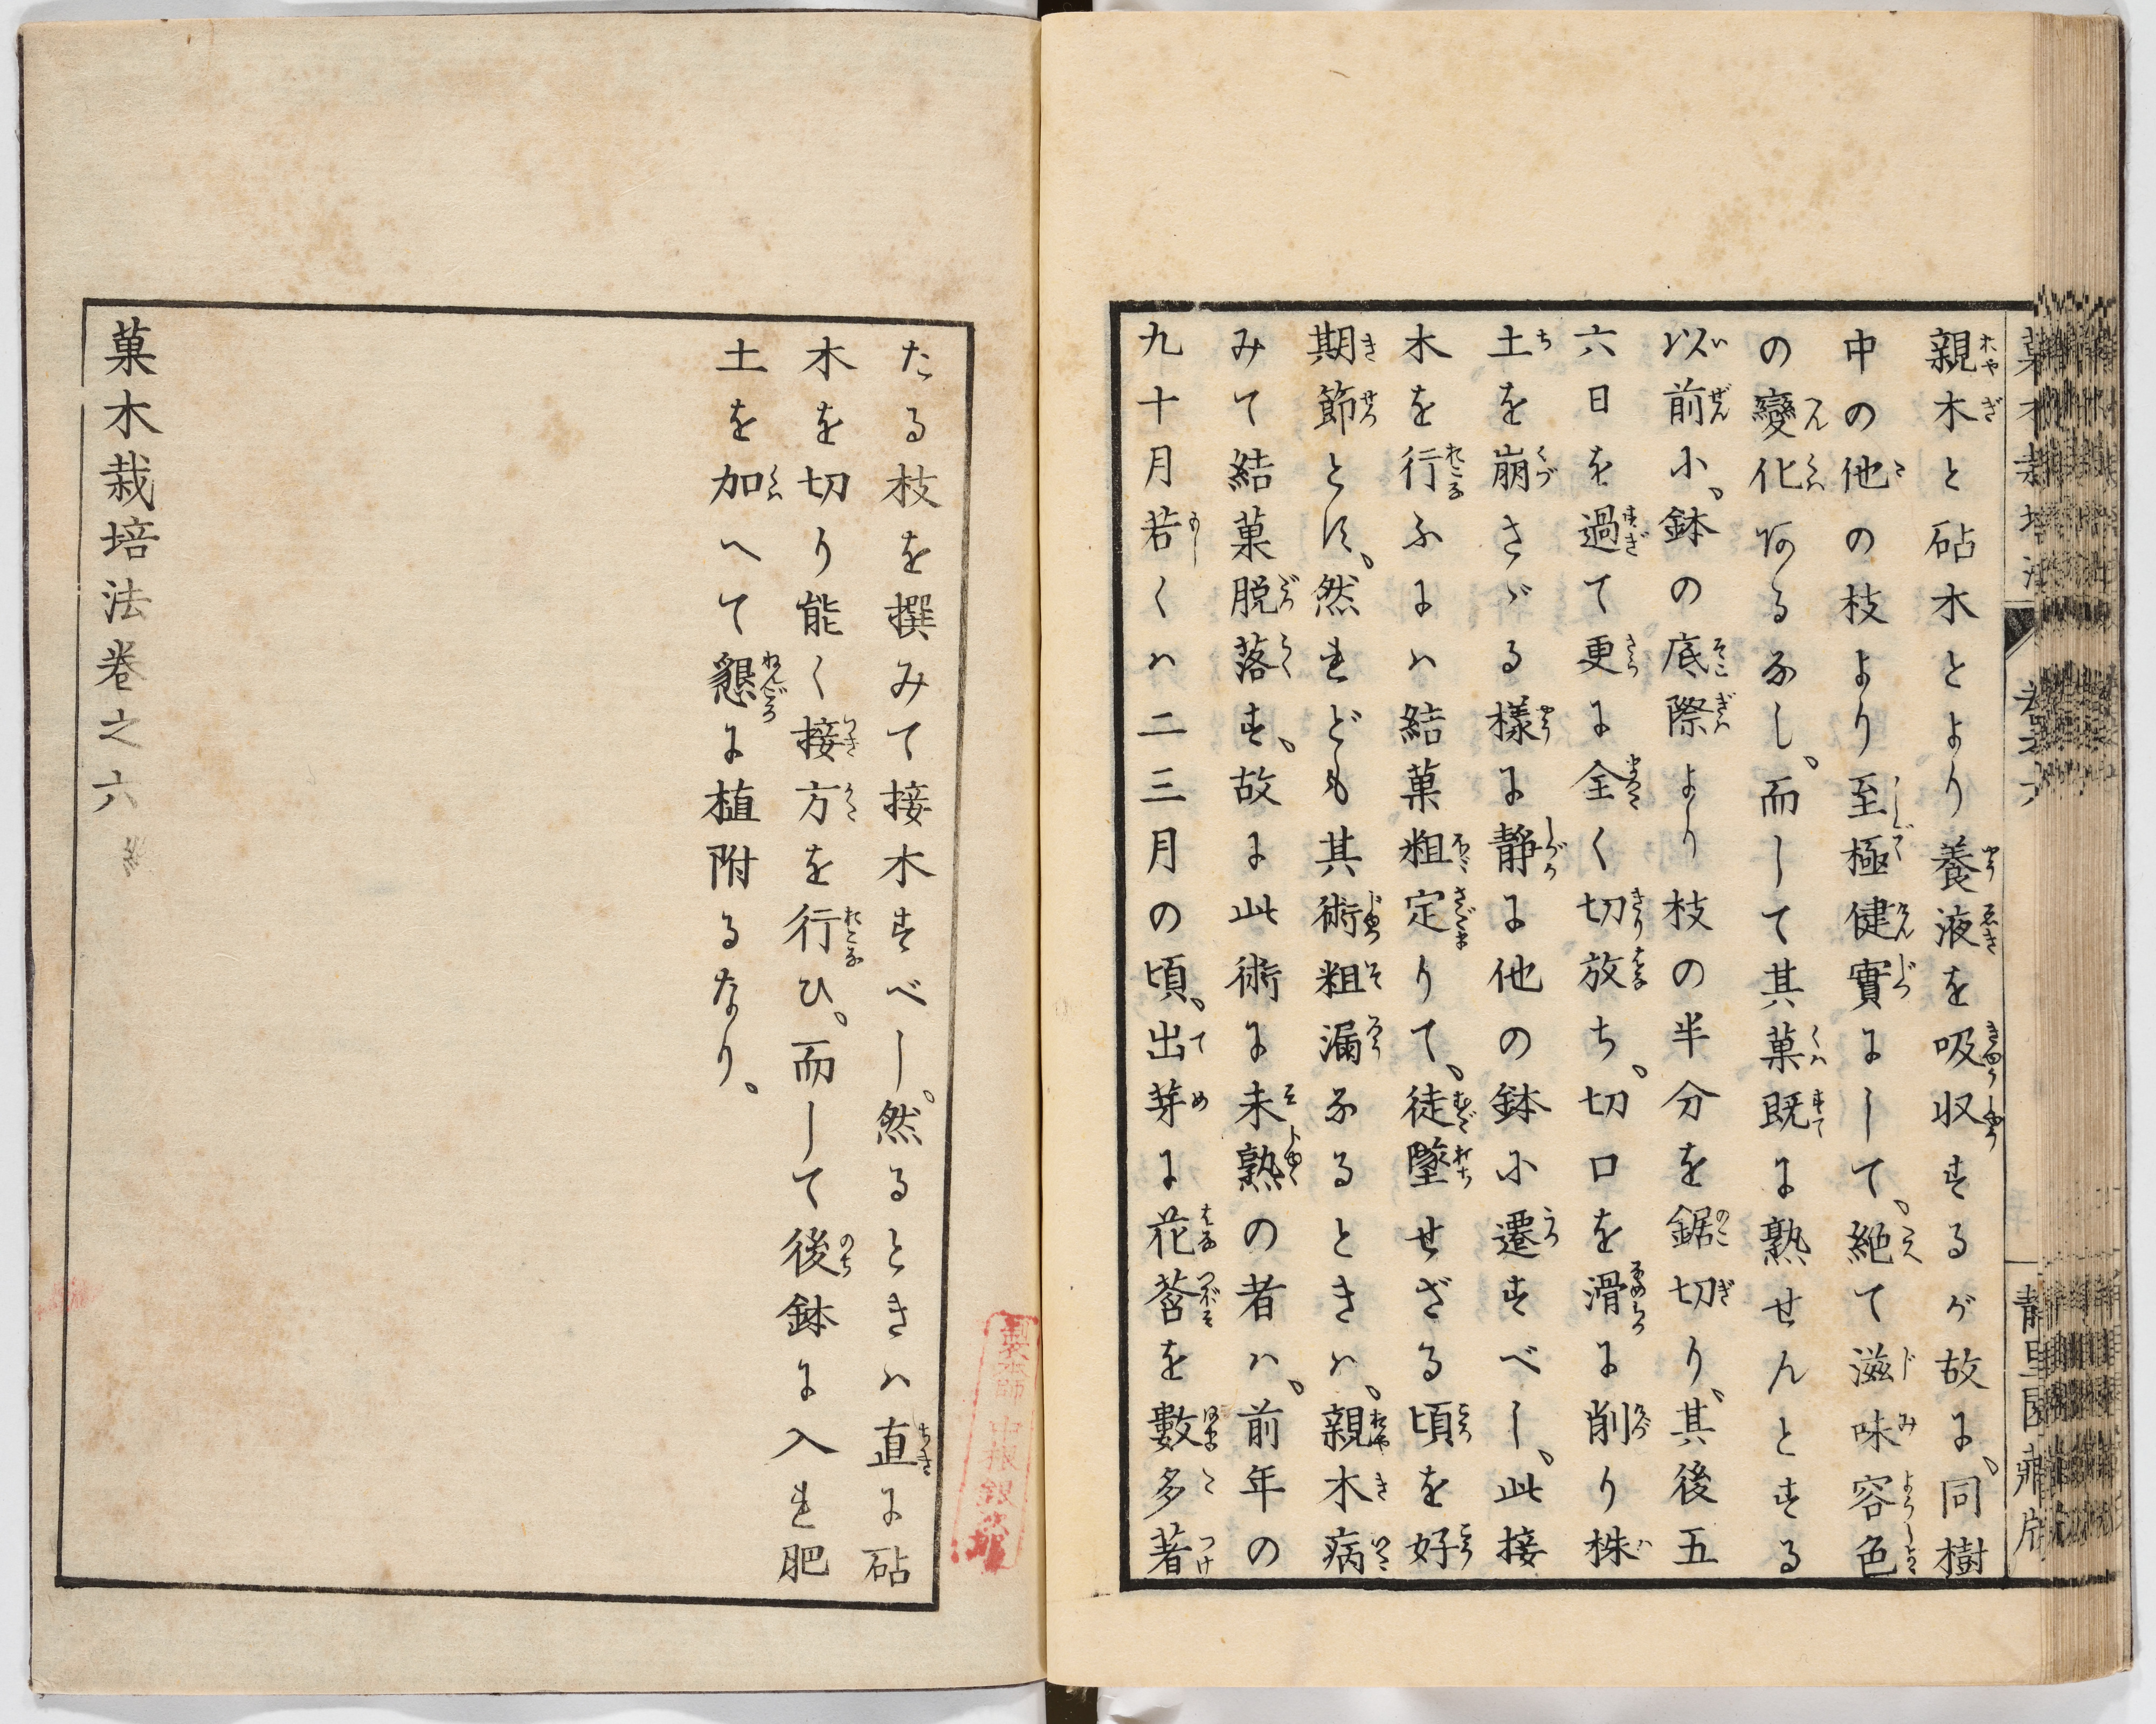 親木と砧木とより養液を吸収するが故に、同樹
中の他の枝より至極健實にして、絶て滋味容色
の變化あるなし、而して其菓既に熟せんとする
以前に、鉢の底際より枝の半分を鋸切り、其後五
六日を過て更に全く切放ち、切口を滑に削り株
土を崩さゞる様に静に他の鉢に遷すべし、此接
木を行ふには結菓粗定りて、徒墜せざる頃を好
期節とす、然れども其術粗漏なるときは、親木病
みて結菓脱落す、故に此術に未熟の者は、前年の
九十月若くは二三月の頃、出芽に花莟を數多著
たる枝を撰みて接木すべし、然るときは直に砧
木を切り能く接方を行ひ、而して後鉢に入れ肥
土を加へて懇に植附るなり、
菓木栽培法卷之六
製本師 中根銀次郎